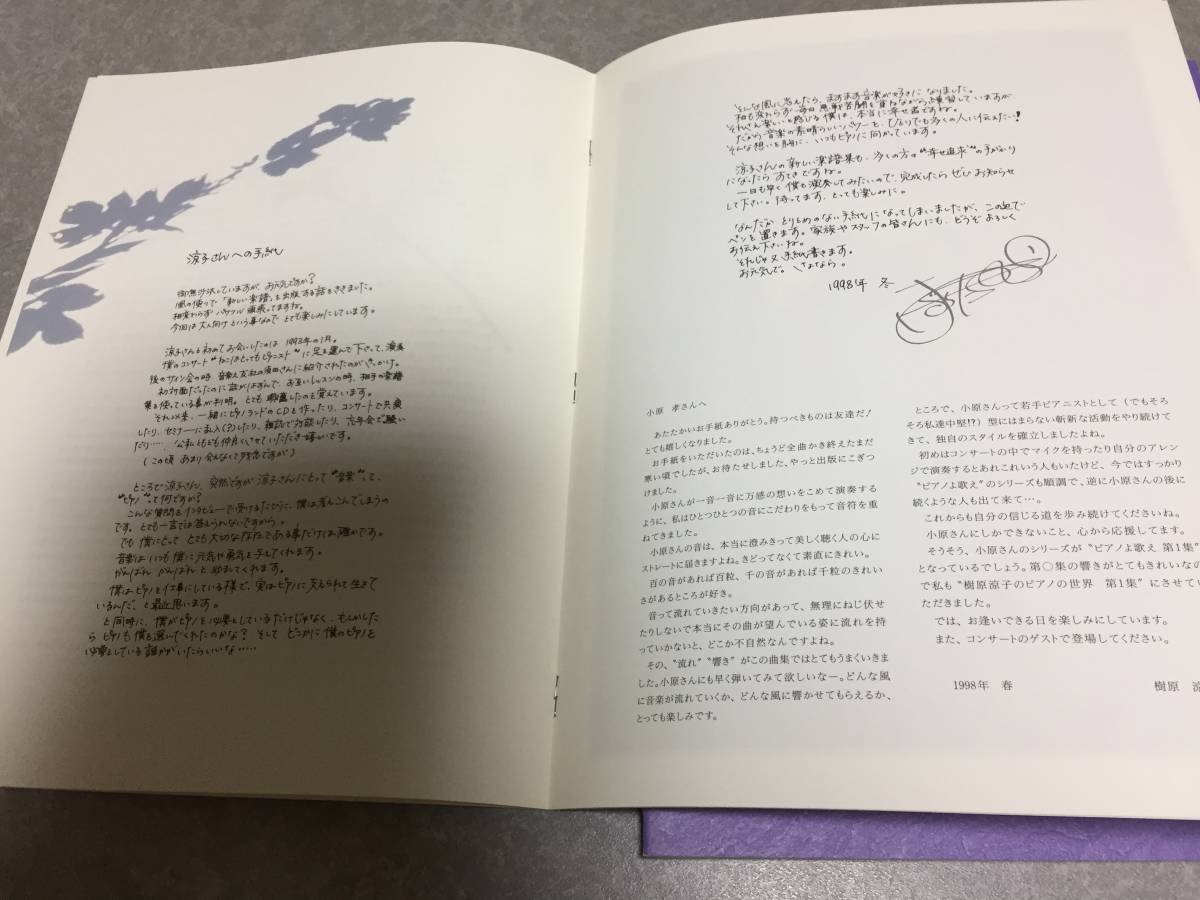 涼子さんへの手紙
御無沙汰していますが、お元気ですか?
風の便りで、「新しい楽譜」を出版する話をききました。
相変わらずパワフル 頑張ってますね。
今回は大人向けという事なので、とても楽しみにしています。
涼子さんと初めてお会いしたのは 1993年の1月。
僕のコンサート〝ねこはとってもピアニスト〟に足を運んで下さって、演奏
後のサイン会の時、音楽之友社の須田さんに紹介されたのがきっかけ。
初対面だったのに話がはずんで、お互いレッスンの時、相手の楽譜
集を使っている事が判明。とても感激したのを覚えています。
それ以来、一緒にピアノランドのCDを作ったり、コンサートで共演
したり、セミナーに乱入(?)したり、雑誌で対談したり、忘年会で騒い
だり……、公私ともども仲良くさせていただき嬉しいです。
(この頃 あまり会えなくて残念ですが)
ところで涼子さん、突然ですが涼子さんにとって〝音楽〟って、
〝ピアノ〟って何ですか?
こんな質問をインタビューで受けるたびに、僕は考えこんでしまうの
です。とても一言では答えられないですから。
でも 僕にとって とても大切なものである事だけは確かです。
音楽はいつも僕に元気や勇気を与えてくれます。
がんばれ がんばれ と励ましてくれます。
僕はピアノを仕事にしている様で、実はピアノに支えられて生きて
いるんだ、と最近思います。
と同時に、僕がピアノを必要としているだけじゃなく、もしかした
ら ピアノも僕を選んでくれたのかな? そして どこかに僕のピアノを
必要としている誰かがいたらいいな……
そんな風に考えたら、ますます音楽が好きに なりました。
相も変わらず 毎日 悪戦苦闘を重ねながら練習していますが、
それさえ楽しいと感じる僕は、本当に幸せ者ですね。
だから 音楽の素晴らしいパワーを、ひとりでも多くの人に伝えたい!
そんな想いを胸に、いつもピアノに向かっています。
涼子さんの新しい楽譜集も、多くの方の〝幸せ追求〟の手がかり
になったら すてきですね。
一日も早く 僕も演奏してみたいので、完成したら ぜひ お知らせ
して下さい。待ってます、とっても楽しみに。
なんだか とりとめのない手紙になってしまいましたが、この辺で
ペンを置きます。家族やスタッフの皆さんにも、どうぞ よろしく
お伝え下さいね。
それじゃ又 手紙書きます。
お元気で。さようなら。
1998年 冬
小原 孝さんへ
あたたかいお手紙ありがとう。持つべきものは友達だ!
とても嬉しくなりました。
お手紙をいただいたのは、ちょうど全曲かき終えたまだ
寒い頃でしたが、お待たせしました、やっと出版にこぎつ
けました。
小原さんが一音一音に万感の想いをこめて演奏する
ように、私はひとつひとつの音にこだわりをもって音符を重
ねてきました。
小原さんの音は、本当に澄みきって美しく聴く人の心に
ストレートに届きますよね。きどってなくて素直にきれい。
百の音があれば百粒、千の音があれば千粒のきれい
さがあるところが好き。
音って流れていきたい方向があって、無理にねじ伏せ
たりしないで本当にその曲が望んでいる姿に流れを持
っていかないと、どこか不自然なんですよね。
その、〝流れ〟〝響き〟がこの曲集ではとてもうまくいきま
した。小原さんにも早く弾いてみて欲しいなー。どんな風
に音楽が流れていくか、どんな風に響かせてもらえるか、
とっても楽しみです。
ところで、小原さんって若手ピアニストとして(でもそろ
そろ私達中堅!?)型にはまらない斬新な活動をやり続けて
きて、独自のスタイルを確立しましたよね。
初めはコンサートの中でマイクを持ったり自分のアレン
ジで演奏するとあれこれいう人もいたけど、今ではすっかり
〝ピアノよ歌え〟のシリーズも順調で、逆に小原さんの後に
続くような人も出て来て…。
これからも自分の信じる道を歩み続けてくださいね。
小原さんにしかできないこと、心から応援してます。
そうそう、小原さんのシリーズが〝ピアノよ歌え 第1集〟
となっているでしょう。第○集の響きがとてもきれいなの
で私も〝樹原涼子のピアノの世界 第1集〟にさせてい
ただきました。
では、お逢いできる日を楽しみにしています。
また、コンサートのゲストで登場してください。
1998年 春
樹原 涼